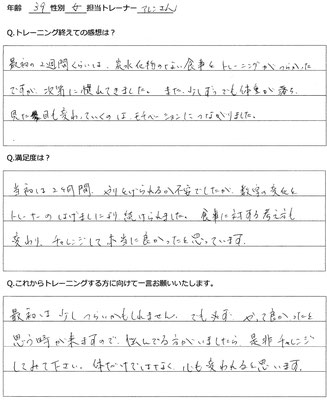 年齢 39 性別 女 担当トレーナー マルこさん
Q.トレーニング終えての感想は？
最初の2週間くらいは、炭水化物のない食事とトレーニングがつらかった
ですが、次第に慣れてきました。また、少しずつでも体重が落ち、
見た目も変わっていくのは、モチベーションにつながりました。
Q.満足度は？
当初は2ヶ月間、やりとげられるか不安でしたが、数字の変化と
トレーナーのはげましにより続けられました。食事に対する考え方も
変わり、チャレンジして本当に良かったと思っています。
Q.これからトレーニングする方に向けて一言お願いいたします。
最初は少しつらいかもしれません。でも必ず、やって良かったと
思う時が来ますので、悩んでる方がいましたら、是非チャレンジ
してみて下さい。体だけではなく、心も変われると思います。